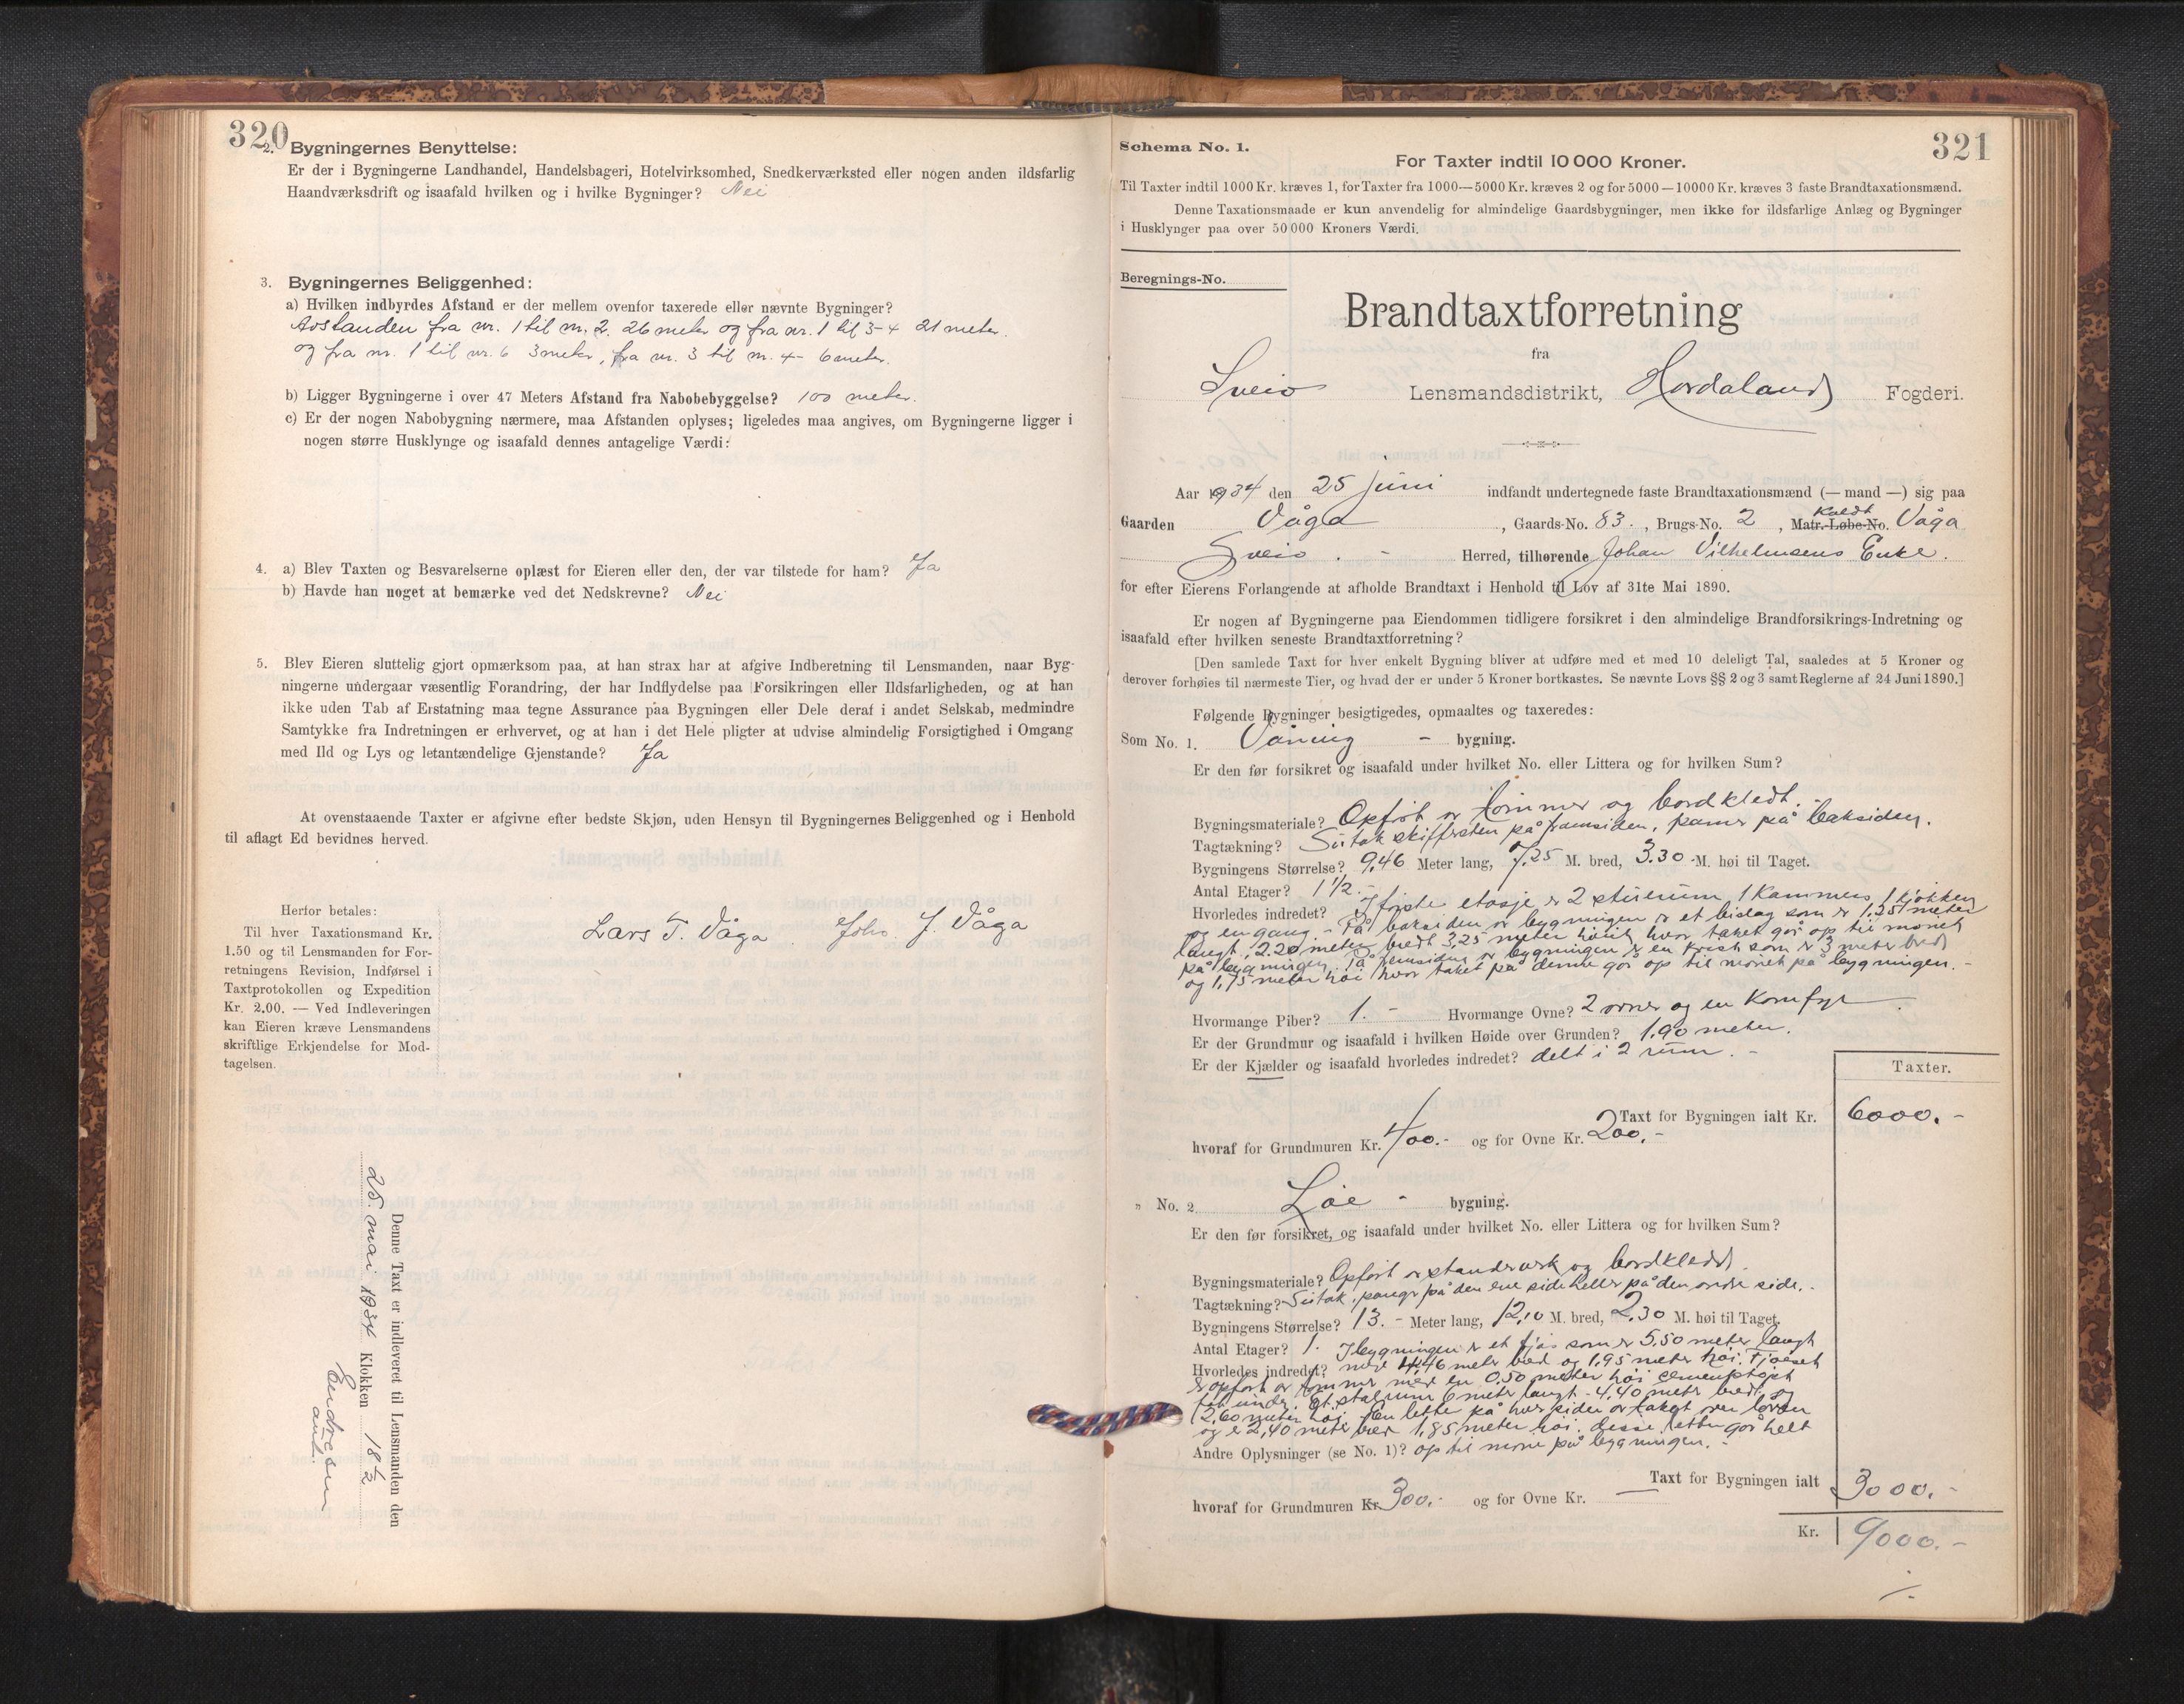 320
2. Bygningernes Benyttelse:
Er der i Bygningerne Landhandel, Handelsbageri, Hotelvirksomhed, Snedkerværksted eller nogen anden ildsfarlig
Haandværksdrift og isaafald hvilken og i hvilke Bygninger? Nei
3. Bygningernes Beliggenhed:
a) Hvilken indbyrdes Afstand er der mellem ovenfor taxerede eller nævnte Bygninger?
Avstanden fra nr. 1 til nr. 2. 26 meter og fra nr. 1 til 3-4 21 meter.
og fra nr. 1 til nr. 6 3 meter, fra nr. 3 til nr. 4- 6 meter.
b) Ligger Bygningerne i over 47 Meters Afstand fra Nabobebyggelse? 100 meter.
c) Er der nogen Nabobygning nærmere, maa Afstanden oplyses; ligeledes maa angives, om Bygningerne ligger i
nogen større Husklynge og isaafald dennes antagelige Værdi:
4. a) Blev Taxten og Besvarelserne oplæst for Eieren eller den, der var tilstede for ham? Ja
b) Havde han noget at bemærke ved det Nedskrevne? Nei
5. Blev Eieren sluttelig gjort opmærksom paa, at han strax har at afgive Indberetning til Lensmanden, naar Byg-
ningerne undergaar væsentlig Forandring, der har Indflydelse paa Forsikringen eller Ildsfarligheden, og at han
ikke uden Tab af Erstatning maa tegne Assurance paa Bygningen eller Dele deraf i andet Selskab, medmindre
Samtykke fra Indretningen er erhvervet, og at han i det Hele pligter at udvise almindelig Forsigtighed i Omgang
med Ild og Lys og letantændelige Gjenstande? Ja
At ovenstaaende Taxter er afgivne efter bedste Skjøn, uden Hensyn til Bygningernes Beliggenhed og i Henhold
til aflagt Ed bevidnes herved.
Lars T. Våga. Johs. J. Våga
Herfor betales:
Til hver Taxationsmand Kr.
1.50 og til Lensmanden for For-
retningens Revision, Indførsel i
Taxtprotokollen og Expedition
Kr. 2.00. — Ved Indleveringen
kan Eieren kræve Lensmandens
skriftlige Erkjendelse for Mod-
tagelsen.
Denne Taxt er indleveret til Lensmanden den
25. mai 1934 Klokken 18 1/2
Endresen
321
Schema No. 1.
For Taxter indtil 10 000 Kroner.
Til Taxter indtil 1000 Kr. kræves 1, for Taxter fra 1000—5000 Kr. kræves 2 og for 5000—10000 Kr. kræves 3 faste Brandtaxationsmænd.
Denne Taxationsmaade er kun anvendelig for almindelige Gaardsbygninger, men ikke for ildsfarlige Anlæg og Bygninger
i Husklynger paa over 50 000 Kroners Værdi.
Beregnings-No.
Brandtaxtforretning
fra
Sveio Lensmandsdistrikt, Hordaland Fogderi.
Aar 1934 den 25 juni indfandt undertegnede faste Brandtaxationsmænd (— mand —) sig paa
Gaarden Våga, Gaards-No. 83., Brugs-No. 2, Matr.-Løbe-No. Kaldt Våga
Sveio. - Herred, tilhørende Johan Vilhelmsens Enke.
for efter Eierens Forlangende at afholde Brandtaxt i Henhold til Lov af 31te Mai 1890.
Er nogen af Bygningerne paa Eiendommen tidligere forsikret i den almindelige Brandforsikrings-Indretning og
isaafald efter hvilken seneste Brandtaxtforretning?
[Den samlede Taxt for hver enkelt Bygning bliver at udføre med et med 10 deleligt Tal, saaledes at 5 Kroner og
derover forhøies til nærmeste Tier, og hvad der er under 5 Kroner bortkastes. Se nævnte Lovs §§ 2 og 3 samt Reglerne af 24 Juni 1890.]
Følgende Bygninger besigtigedes, opmaaltes og taxeredes:
Som No. 1. Våning - bygning.
Er den før forsikret og isaafald under hvilket No. eller Littera og for hvilken Sum?
Bygningsmateriale? Opført av tømmer og bordkledt.
Tagtækning? Sutak skiffersten på framsiden, paner på baksiden.
Bygningens Størrelse? 9,46 Meter lang, 7,25 M. bred, 3.30 M. høi til Taget.
Antal Etager? 1 1/2.
Hvorledes indredet? I første etasje er 2 stuerum 1 Kammers 1 kjøkken
og en gang. - På baksiden av bygningen er et bislag som er 1,25 meter
langt, 2.20 meter bredt 3,25 meter høit hvor taket går op til mønet
på bygningen. På framsiden av bygningen er en kvist som er 3 meter bred
og 1,75 meter høi hvor taket på denne går op til mønet på bygningen. -
Hvormange Piber? 1. - Hvormange Ovne? 2 ovner og en Komfyr
Er der Grundmur og isaafald i hvilken Høide over Grunden? 1,90 meter.
Er der Kjælder og isaafald hvorledes indredet? delt i 2 rum. -
Taxter.
Taxt for Bygningen ialt Kr. 6000.-
hvoraf for Grundmuren Kr. 400.- og for Ovne Kr. 200.-
" No. 2 Løe - bygning.
Er den før forsikret, og isaafald under hvilket No. eller Littera og for hvilken Sum?
Bygningsmateriale? Opført av standverk og bordkledd.
Tagtækning? Sutak, paner på den ene side heller på den andre side.
Bygningens Størrelse? 13. - Meter lang, 12,10 M. bred, 2,30 M. høi til Taget.
Antal Etager? 1. I bygningen er et fjøs som er 5,50 meter langt
Hvorledes indredet? med 4,46 meter bred og 1,95 meter høi. Fjøset
er opført av tømmer med en 0,50 meter høi cementstøpt
fot under. Et stalrum 6 meter langt - 4,40 meter bredt og
2,60 meter høi. En lette på hver siden av taket over løven
og er 2,40 meter bred 1,85 meter høi. disse letter går helt
Andre Oplysninger (se No. 1)? op til møne på bygningen. -
Taxt for Bygningen ialt 3000.-
hvoraf for Grundmuren Kr. 300.- og for Ovne Kr. —
Kr. 9000.-